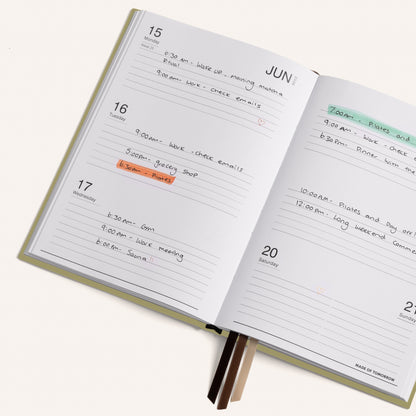 15
Monday
JUN
6:30 AM - Wake up - morning matcha
Ritual
9:00 AM - Work - Check emails
16
Tuesday
9:00AM - Work - Check emails
5:00PM - grocery shop
6:30AM - Pilates
17
Wednesday
6:30AM - Gym
9:00AM - Work meeting
6:00PM - Sauna
7:00AM - Pilates and
9:00AM - Work
6:30PM - Dinner with the
10:00AM - Pilates and Day off!
12:00PM - Long weekend comme
20
Saturday
21
Sunday
MADE OF TOMORROW